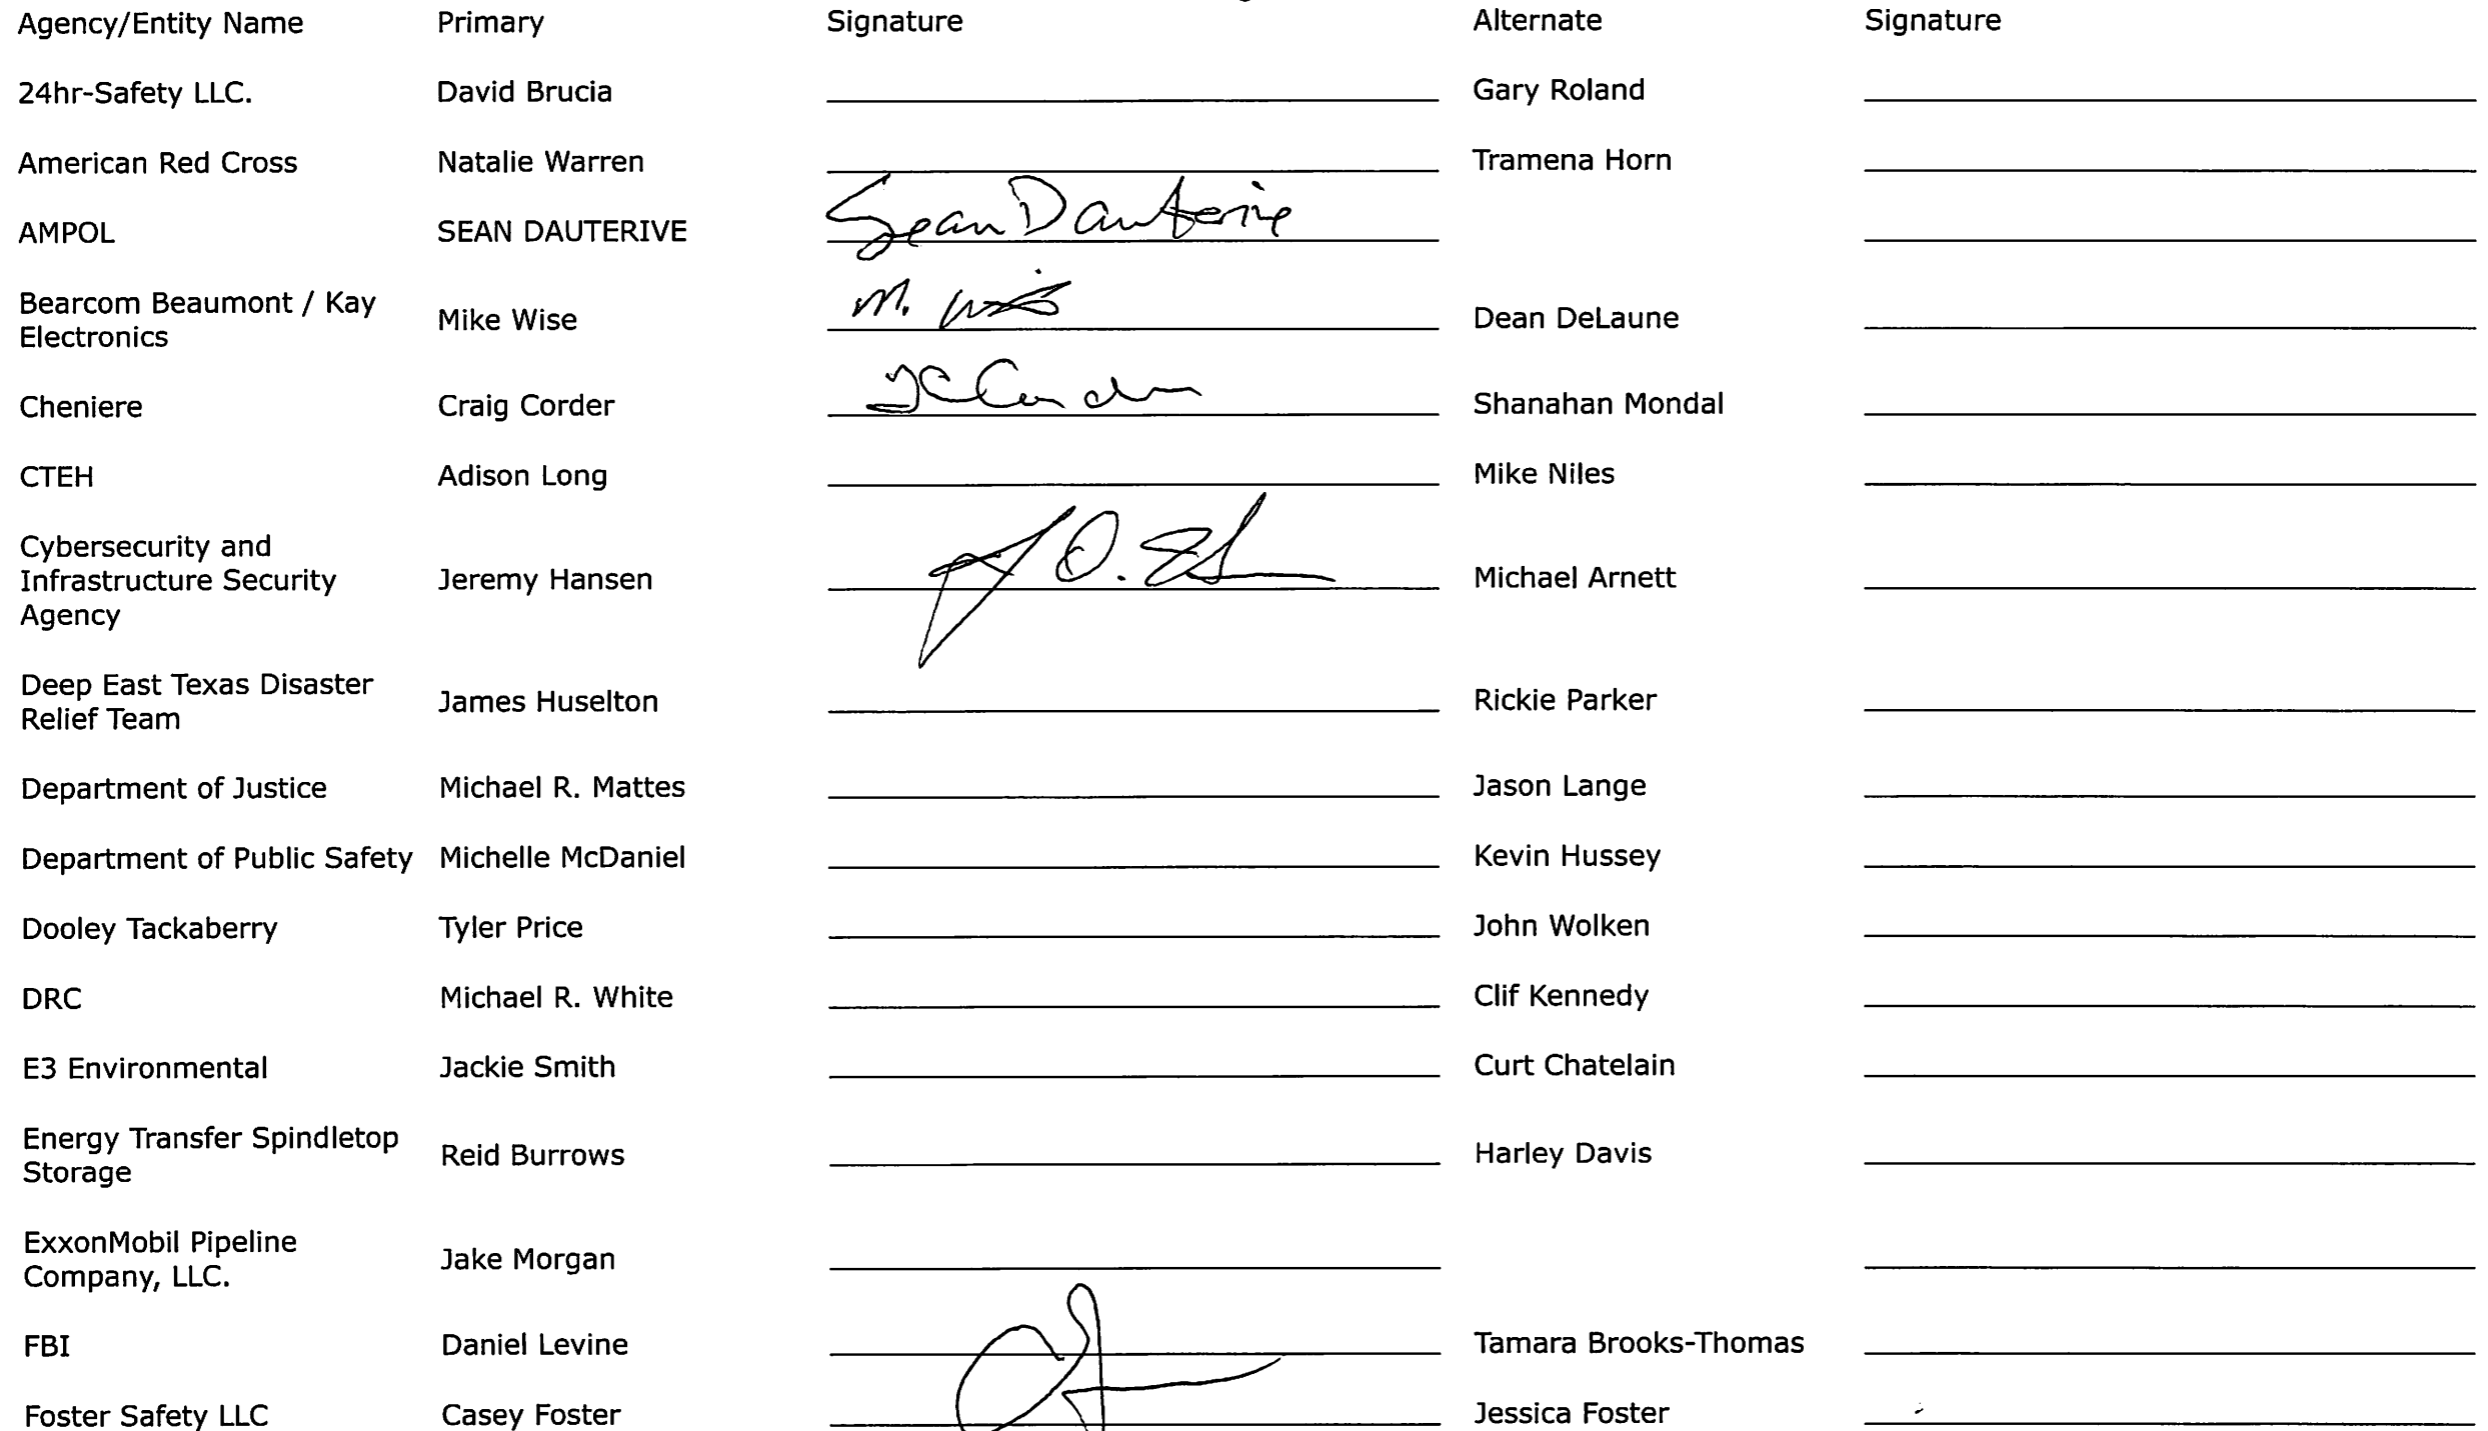 Agency/Entity Name Primary Signature Alternate Signature
24hr-Safety LLC. David Brucia Gary Roland
American Red Cross Natalie Warren Tramena Horn
AMPOL SEAN DAUTERIVE Sean Dauterive
Bearcom Beaumont / Kay
Electronics Mike Wise M. Dean DeLaune
Cheniere Craig Corder Shanahan Mondal
CTEH Adison Long Mike Niles
Cybersecurity and
Infrastructure Security Jeremy Hansen Michael Arnett
Agency
Deep East Texas Disaster
Relief Team James Huselton Rickie Parker
Department of Justice Michael R. Mattes Jason Lange
Department of Public Safety Michelle McDaniel Kevin Hussey
Dooley Tackaberry Tyler Price John Wolken
DRC Michael R. White Clif Kennedy
E3 Environmental Jackie Smith Curt Chatelain
Energy Transfer Spindletop
Storage Reid Burrows Harley Davis
ExxonMobil Pipeline
Company, LLC. Jake Morgan
FBI Daniel Levine Tamara Brooks-Thomas
Foster Safety LLC Casey Foster Jessica Foster